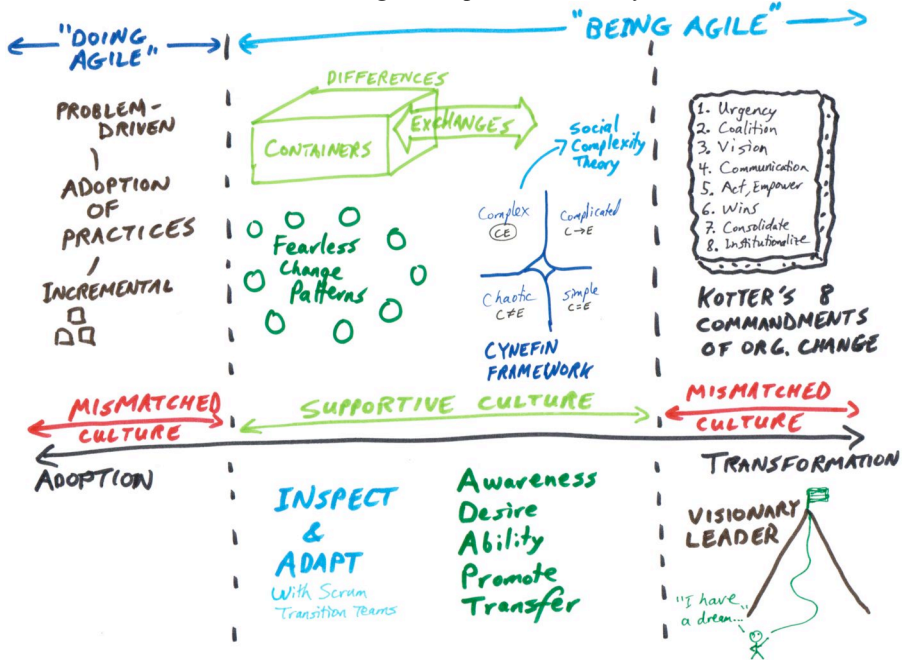 "DOING
AGILE"
"BEING AGILE"
PROBLEM-
DRIVEN
ADOPTION
OF
PRACTICES
INCREMENTAL
DIFFERENCES
CONTAINERS
EXCHANGES
Fearless
Change
Patterns
Social
Complexity
Theory
Complex
CE
Complicated
C→E
Chaotic
C≠E
Simple
C=E
CYNEFIN
FRAMEWORK
1. Urgency
2. Coalition
3. Vision
4. Communication
5. Act, Empower
6. Wins
7. Consolidate
8. Institutionalize
KOTTER'S 8
COMMANDMENTS
OF ORG. CHANGE
MISMATCHED
CULTURE
SUPPORTIVE CULTURE
MISMATCHED
CULTURE
ADOPTION
TRANSFORMATION
INSPECT
&
ADAPT
With Scrum
Transition Teams
Awareness
Desire
Ability
Promote
Transfer
VISIONARY
LEADER
"I have
a dream..."